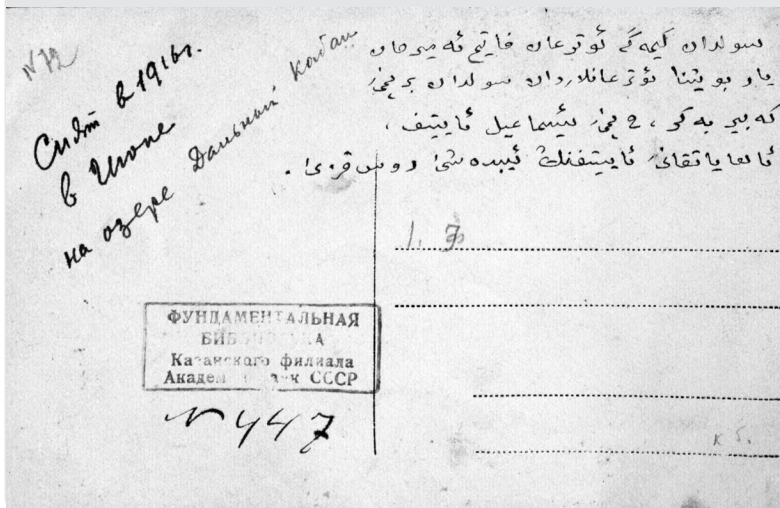 № 72
Снят в 1916 г.
в Июне
на озере Дальный Кабан
سولدان كيمەگە ئوترعان فاتح ئەميرحان
يار بوينا ئوترعانلاردان سولدان برنچى
كەبير بەكر ، 2 نچى ئيسماعيل ئاييتيف ،
ئالعا ياتقانى ئاييتفنڭ ئيبدەشى روس قزى .
ФУНДАМЕНТАЛЬНАЯ
БИБЛИОТЕКА
Казанского филиала
Академии наук СССР
№ 447
к б.